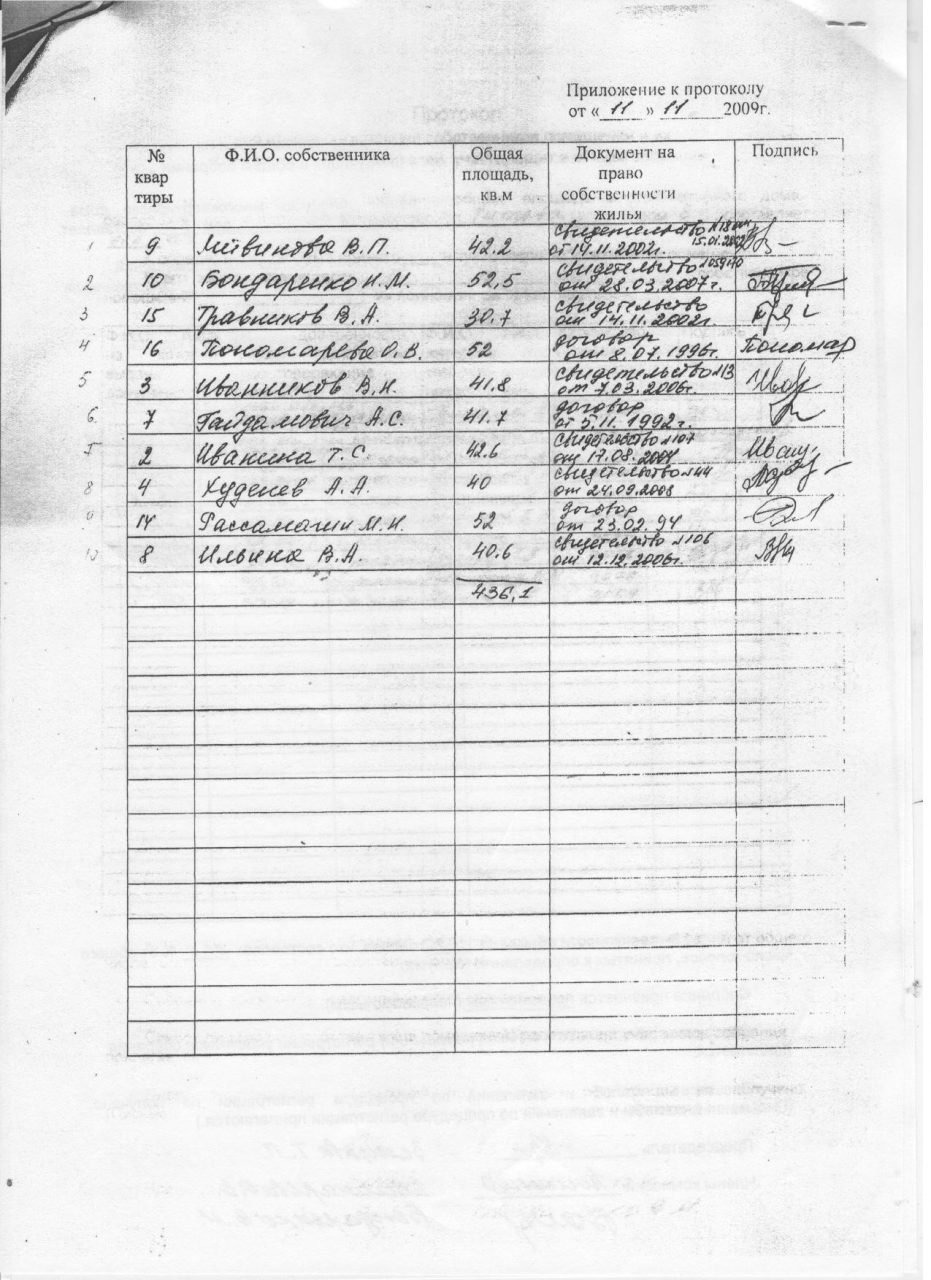 Приложение к протоколу
от « 11 » 11 2009г.
№ квар тиры Ф.И.О. собственника Общая площадь, кв.м Документ на право собственности жилья Подпись
1 9 В.П. 42.2 Свидетельство от 14.11.2002г. 15.01.2002
2 10 Бондаренко Н.М. 52,5 Свидетельство от 28.03.2007г.
3 15 Травников В.А. 30.7 Свидетельство от 14.11.2002г.
4 16 Пономарева О.В. 52 договор от 8.07.1996г. Пономар
5 3 Иванников В.Н. 41.8 Свидетельство от 7.03.2006г.
6 7 Гайдамович А.С. 41.7 договор от 5.11.1992г.
7 2 Иванина Т.С. 42.6 Свидетельство №107 от 17.08.
8 4 Худенев А.А. 40 Свидетельство №44 от 24.09.2008
14 Рассамагин М.И. 52 договор от 23.02.94
10 8 Ильина В.А. 40.6 Свидетельство №106 от 12.12.2006г.
436,1